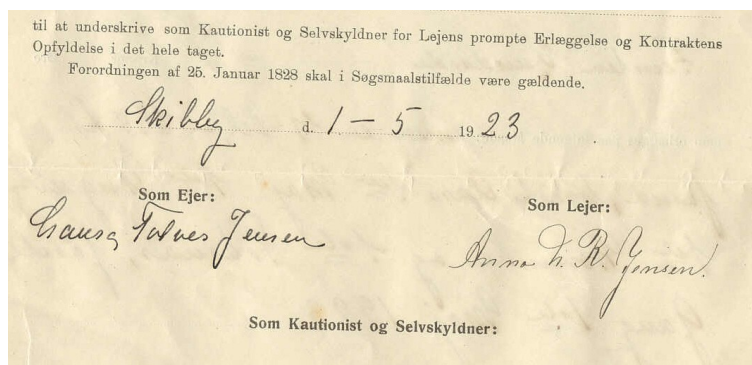 til at underskrive som Kautionist og Selvskyldner for Lejens prompte Erlæggelse og Kontraktens
Opfyldelse i det hele taget.
Forordningen af 25. Januar 1828 skal i Søgsmaalstilfælde være gældende.
Skibby d. 1 - 5 1923
Som Ejer:
Som Lejer:
Jensen
Anna N. R. Jensen.
Som Kautionist og Selvskyldner: